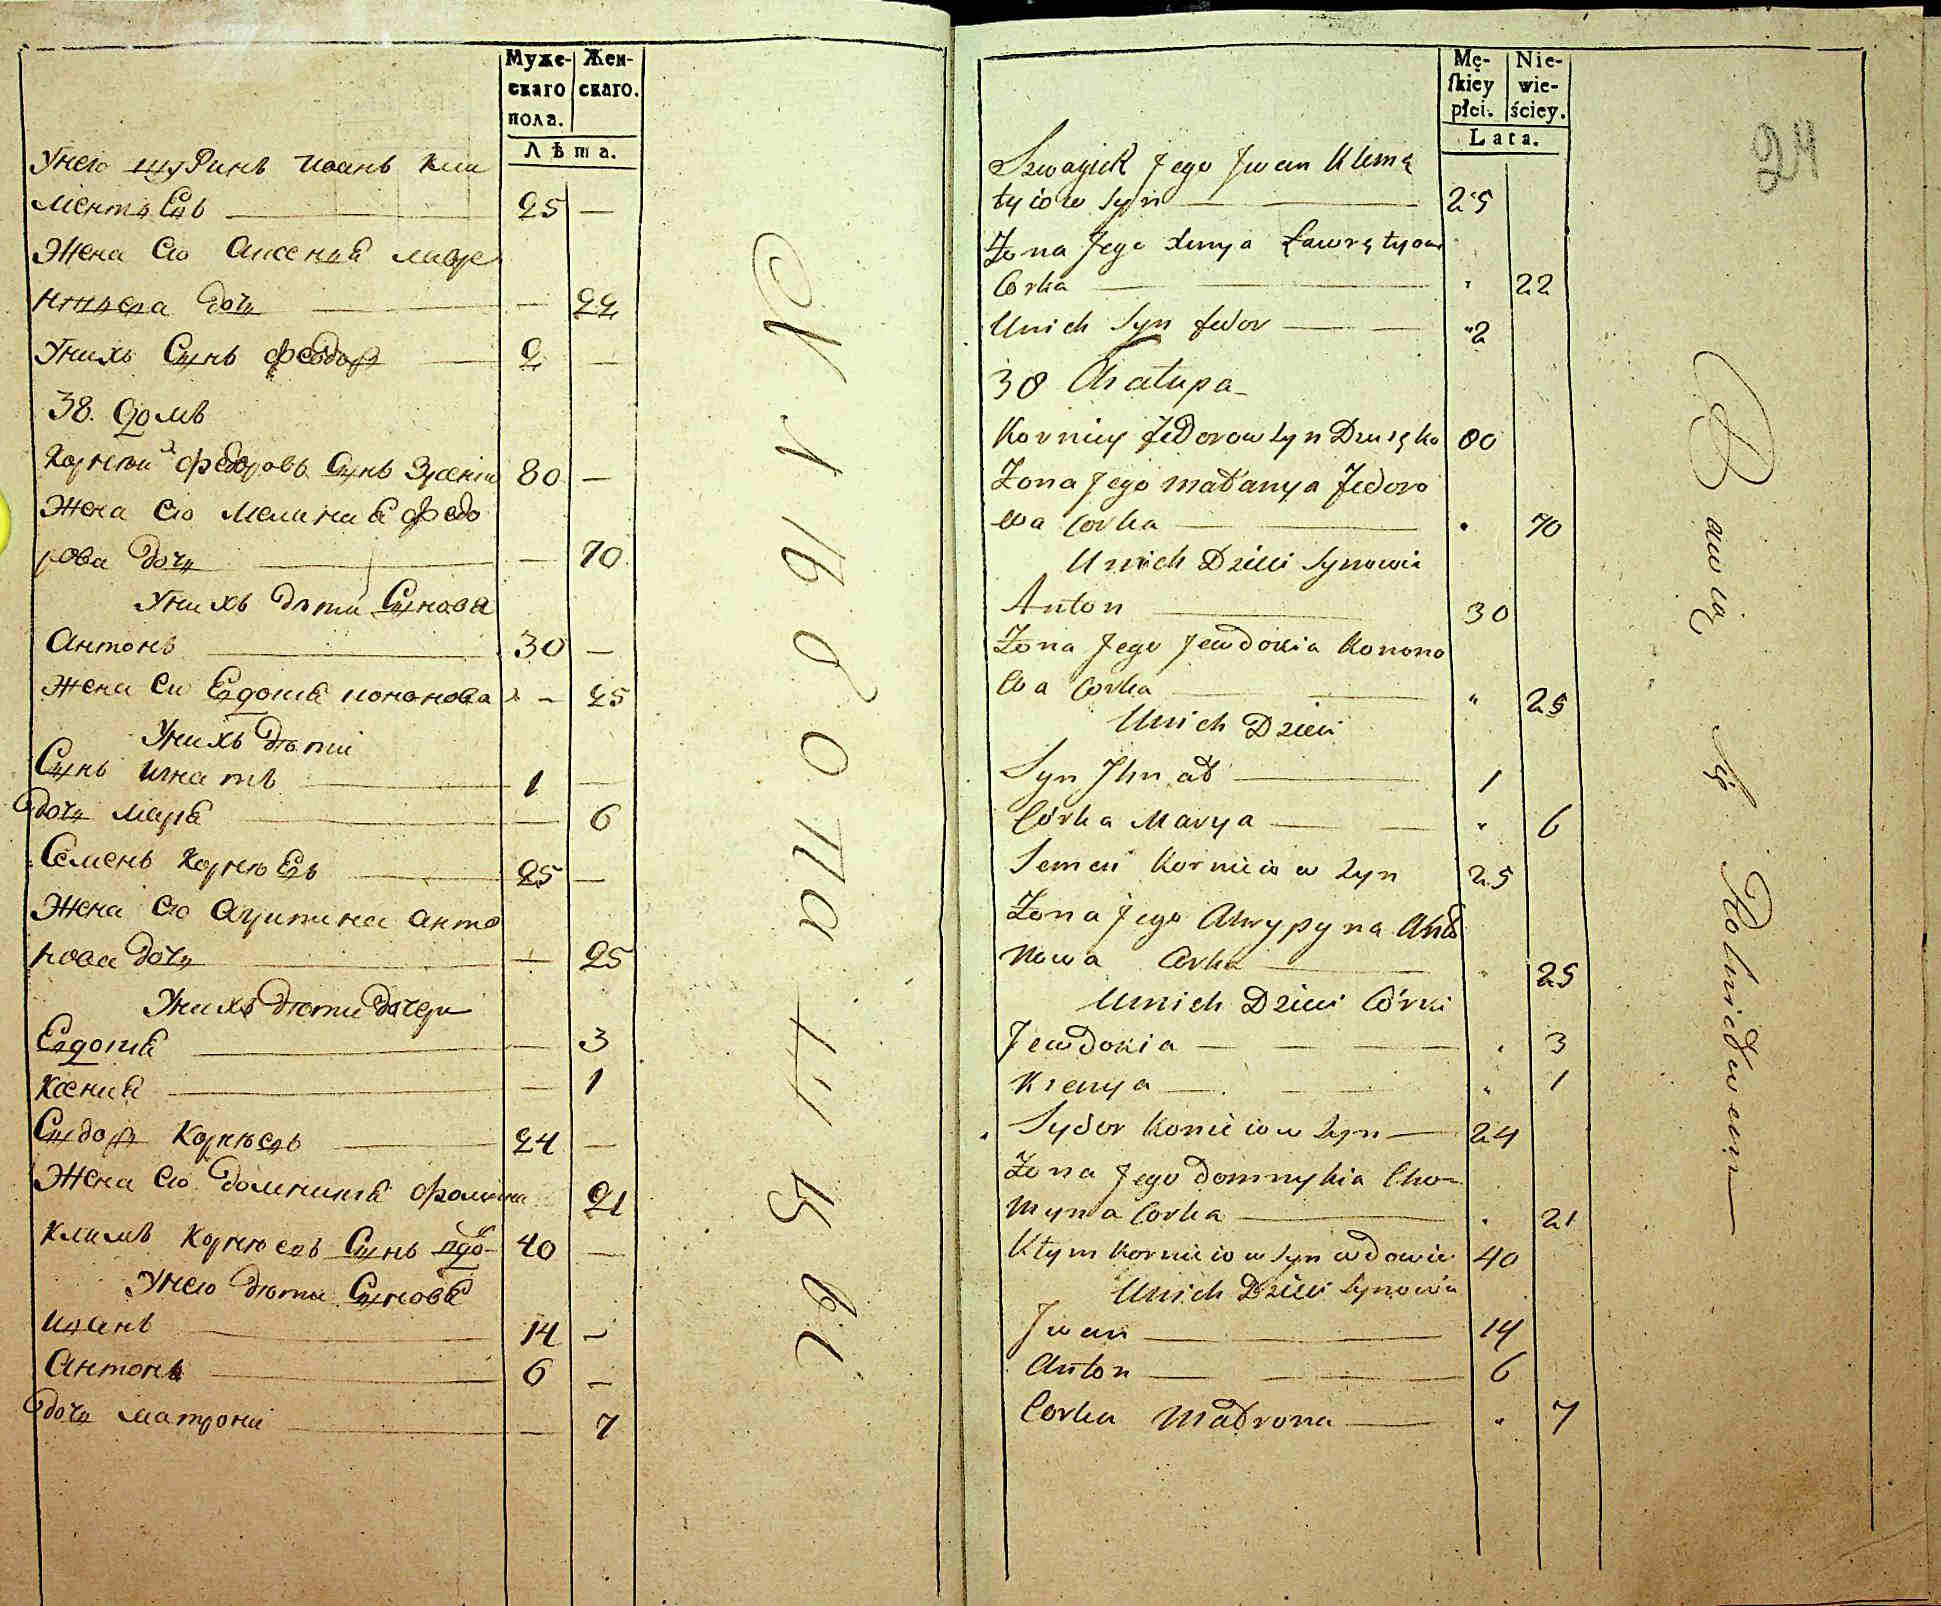 Муже-
скаго
пола.
Жен-
скаго.
Лѣта.
Унего шуринъ Иванъ Кли
ментьевъ — 25 —
Жена его Аксения Лавре
нтьева дочь — 22
Унихъ Сынъ Феодоръ 2 —
38. Домъ
Корней Федоровъ Сынъ 80 —
Жена его Меланиа Федо
рова дочь — 70
Унихъ дѣти Сыновя
Антонъ 30 —
Жена его Евдокиа Кононова — 25
Унихъ дѣти
Сынъ Игнатъ 1 —
дочь Мария — 6
Семенъ Корнѣевъ 25 —
Жена его Агрипина Анто
нова дочь — 25
Унихъ дѣти дочери
Евдокиа — 3
Ксения — 1
Сидоръ Корнѣевъ 24 —
Жена его Домникиа Фомина 21
Климъ Корнѣевъ Сынъ вдо- 40 —
Унего дѣти Сыновя
Иванъ 14 —
Антонъ 6 —
дочь Матрона — 7
Mę-
skiey
płci.
Nie-
wie-
ściey.
Lata.
24
Szwagier Jego Jwan Klimę
tyiow Syn 25
Żona Jego Xenya Ławrętyowa
Corka " 22
Unich Syn Fedor 2
38 Chałupa
Korniey Fedorow Syn 80
Żona Jego Małanya Fedoro
wa Corka " 70
Unich Dzieci Synowie
Anton 30
Żona Jego Jewdokia Konono
wa Corka " 25
Unich Dzieci
Syn Ihnat 1
Córka Marya " 6
Semen Korniciow Syn 25
Żona Jego Ahrypyna Anto
nowa Corka " 25
Unich Dzieci Córki
Jewdokia " 3
Ksenya " 1
Sydor Korniciow Syn 24
Żona Jego Domnykia Cho-
myna Corka " 21
Kłym Korniciow Syn wdowiec 40
Unich Dzieci Synowie
Jwan 14
Anton 6
Corka Matrona " 7
Bawią Się Rolnictwem